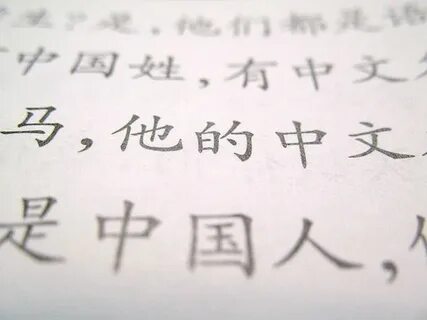 是,他们都是语
中国姓,有中文
马,他的中文
是中国人,